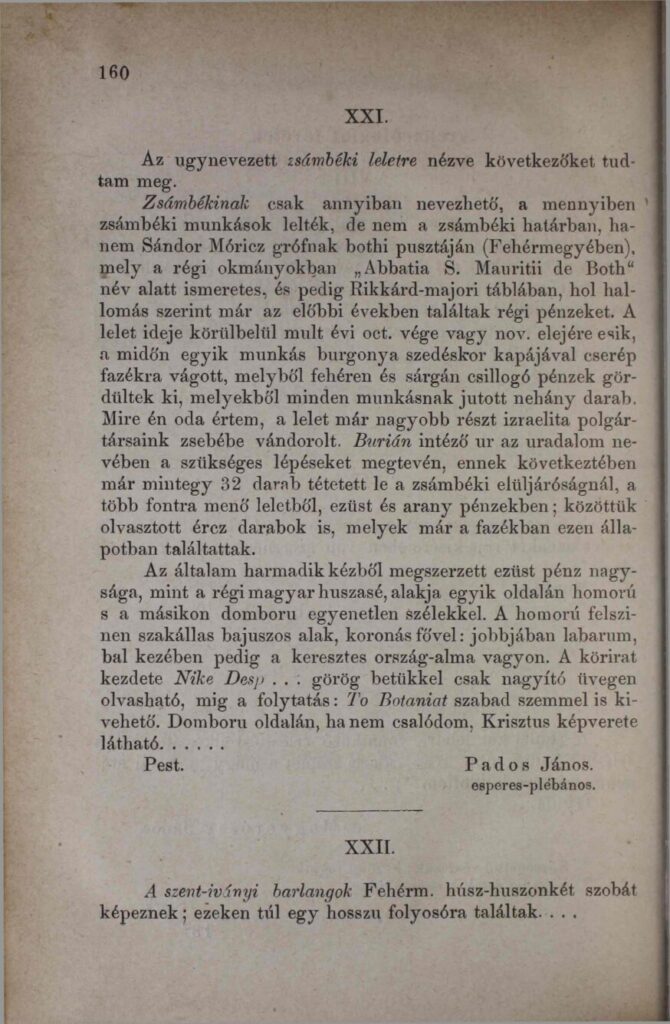 160
XXI.
Az ugynevezett zsámbéki leletre nézve következőket tud-
tam meg.
Zsámbékinak csak annyiban nevezhető, a mennyiben
zsámbéki munkások lelték, de nem a zsámbéki határban, ha-
nem Sándor Móricz grófnak bothi pusztáján (Fehérmegyében),
mely a régi okmányokban „Abbatia S. Mauritii de Both“
név alatt ismeretes, és pedig Rikkárd-majori táblában, hol hal-
lomás szerint már az előbbi években találtak régi pénzeket. A
lelet ideje körülbelül mult évi oct. vége vagy nov. elejére esik,
a midőn egyik munkás burgonya szedéskor kapájával cserép
fazékra vágott, melyből fehéren és sárgán csillogó pénzek gör-
dültek ki, melyekből minden munkásnak jutott nehány darab.
Mire én oda értem, a lelet már nagyobb részt izraelita polgár-
társaink zsebébe vándorolt. Burián intéző ur az uradalom ne-
vében a szükséges lépéseket megtevén, ennek következtében
már mintegy 32 darab tétetett le a zsámbéki elüljáróságnál, a
több fontra menő leletből, ezüst és arany pénzekben; közöttük
olvasztott ércz darabok is, melyek már a fazékban ezen álla-
potban találtattak.
Az általam harmadik kézből megszerzett ezüst pénz nagy-
sága, mint a régi magyar huszasé, alakja egyik oldalán homorú
s a másikon domboru egyenetlen szélekkel. A homorú felszi-
nen szakállas bajuszos alak, koronás fővel: jobbjában labarum,
bal kezében pedig a keresztes ország-alma vagyon. A körirat
kezdete Nike Desp . . . görög betükkel csak nagyító üvegen
olvasható, mig a folytatás: To Botaniat szabad szemmel is ki-
vehető. Domboru oldalán, ha nem csalódom, Krisztus képverete
látható. . . . . .
Pest. Pados János.
esperes-plébános.
XXII.
A szent-iványi barlangok Fehérm. húsz-huszonkét szobát
képeznek; ezeken túl egy hosszu folyosóra találtak. . . .